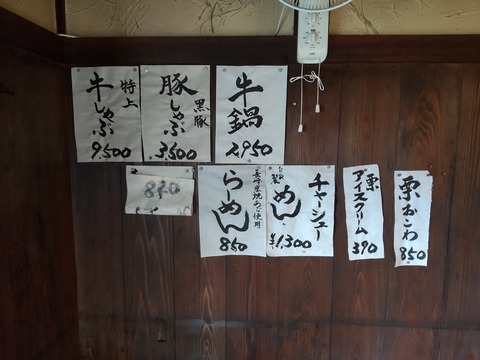 特上
牛しゃぶ
9,500
黒豚
豚しゃぶ
3,500
牛鍋
2,950
長崎産焼あご使用
らーめん
850
チャーシュー
めん
¥1,300
栗
アイスクリーム
390
栗おこわ
850